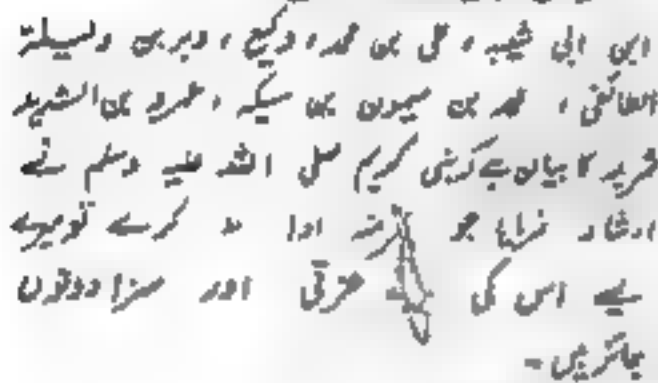 ابن ابی شیبہ ، علی بن محمد ، وکیع ، وبر بن دلیلۃ
الطائفی ، محمد بن میمون بن میکہ ، عمرو بن الشرید
شرید کا بیان ہے کہ نبی کریم صلی اللہ علیہ وسلم نے
ارشاد فرمایا جو ادا نہ کرے تو میرے
لیے اس کی عزتی اور سزا دونوں
جائز ہیں -